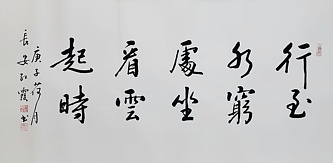 行至
水窮
處坐
看雲
起時
庚子荷月
長安孔霞書